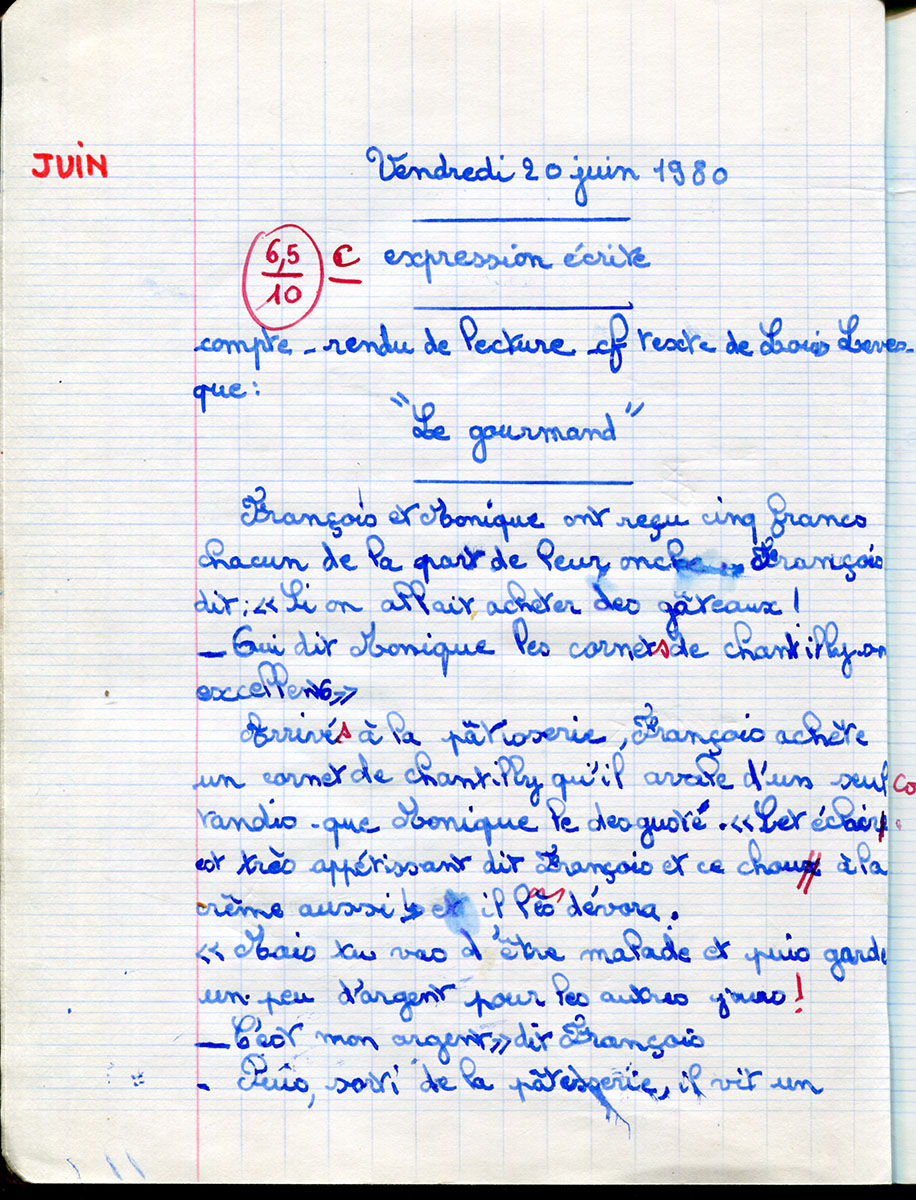 JUIN
Vendredi 20 juin 1980
6,5/10 C expression écrite
compte-rendu de lecture cf texte de Loïs Leves-
que :
"Le gourmand"
François et Monique ont reçu cinq francs
chacun de la part de leur oncle. François
dit : « Si on allait achèter des gâteaux !
— Oui dit Monique les cornets de chantilly
excellents »
Arrivés à la pâtisserie, François achète
un cornet de chantilly qu'il avale d'un seul co
tandis que Monique le desgusté. « Cet éclair
est très appétissant dit François et ce choux à la
crème aussi ! » et il les dévora.
« Mais tu vas d'être malade et puis garde
un peu d'argent pour les autres jours !
— C'est mon argent » dit François
- Puis, sorti de la pâtesserie, il vit un